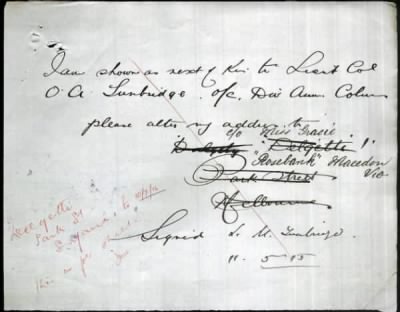 I am shown as next of Kin to Lieut Col
O. A. Tunbridge. o/c. Div Amm. Column
please alter my address to
c/o Miss Grasie
Dalgety "Delgetti"!
"Rosebank" Macedon
Park Street Vic
Melbourne
Signed L. M. Tunbridge
11. 5 15
Park St